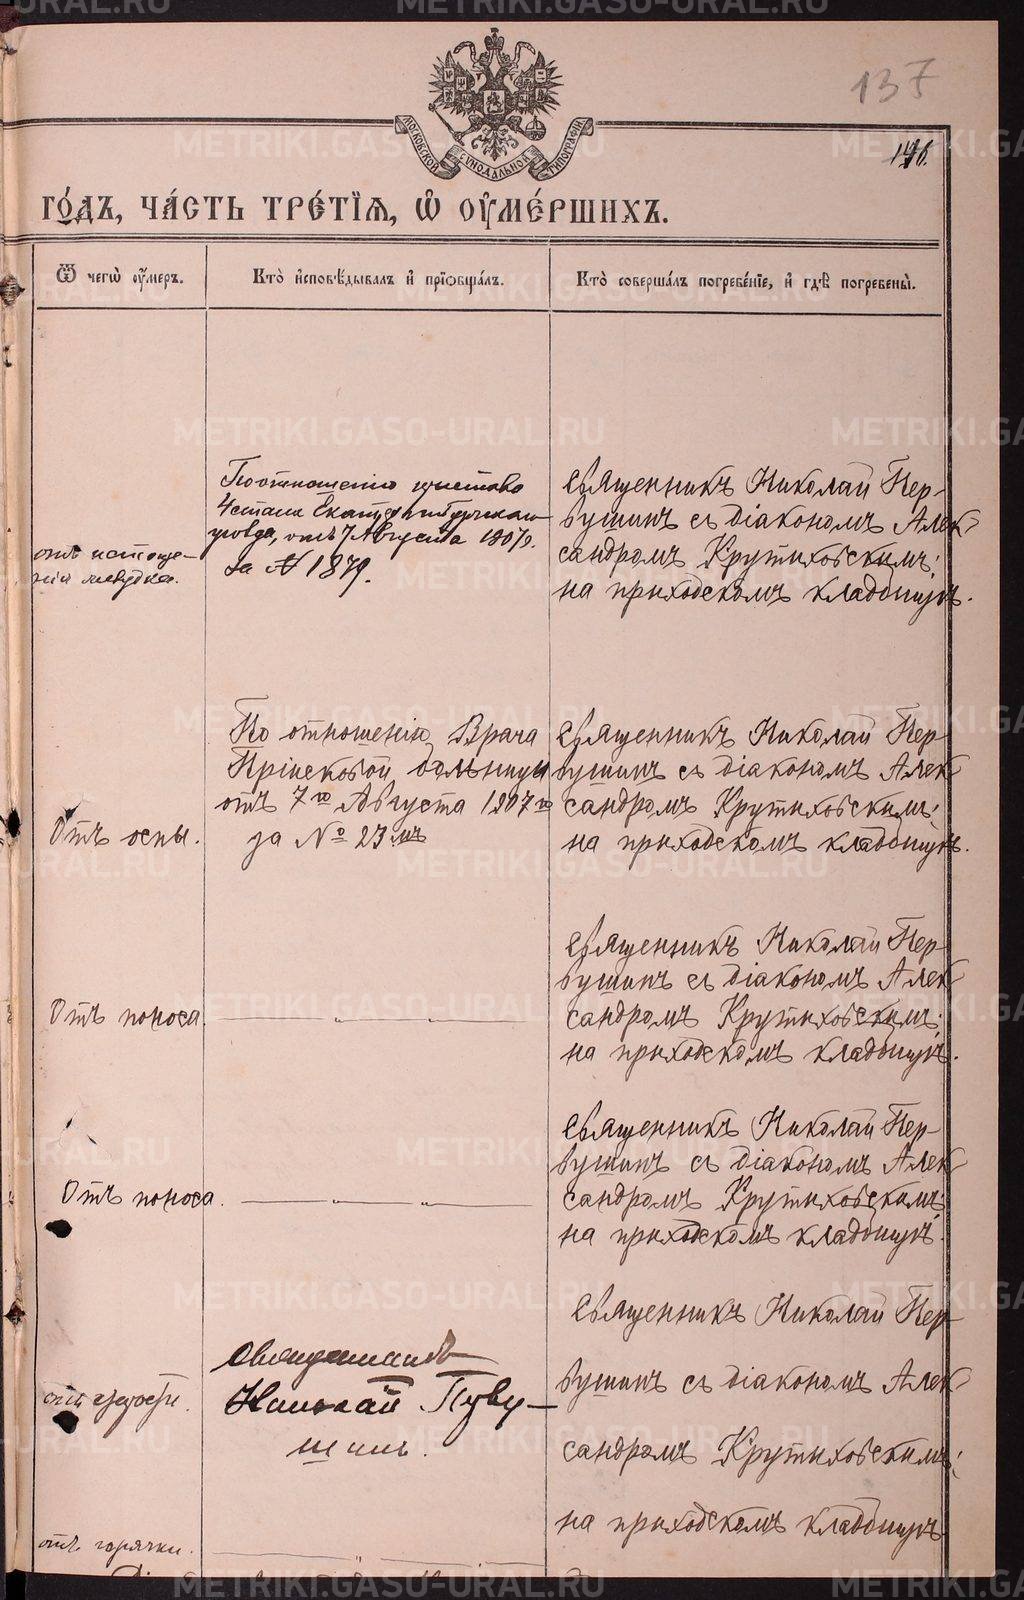 137
146.
МОСКОВСКОЙ СѴНОДАЛЬНОЙ ТИПОГРАФІИ
ГО́ДЪ, ЧА́СТЬ ТРЕ́ТІѦ, Ѡ҆ ОУ҆МЕ́РШИХЪ.
Ѿ чегѡ̀ оу҆́меръ.
Кто̀ и҆сповѣ́дывалъ и҆ прїѡбща́лъ.
Кто̀ соверша́лъ погребе́нїе, и҆ гдѣ̀ погребены̀.
отъ истоще-
нія желудка.
По отношенію пристава
4 стана Екатеринбургскаго
уѣзда, отъ 7 Августа 1907 г.
за № 1879.
Священникъ Николай Пер-
вушинъ съ діакономъ Алек-
сандромъ Крутиховскимъ;
на приходскомъ кладбищѣ.
Отъ оспы.
По отношенію Врача
Пріисковой больницы
отъ 7го Августа 1907 го
за № 23 мъ
Священникъ Николай Пер-
вушинъ съ діакономъ Алек-
сандромъ Крутиховскимъ;
на приходскомъ кладбищѣ.
Отъ поноса.
Священникъ Николай Пер-
вушинъ съ діакономъ Алек-
сандромъ Крутиховскимъ;
на приходскомъ кладбищѣ.
Отъ поноса.
Священникъ Николай Пер-
вушинъ съ діакономъ Алек-
сандромъ Крутиховскимъ;
на приходскомъ кладбищѣ.
отъ старости.
Священникъ
Николай Перву-
шинъ.
Священникъ Николай Пер-
вушинъ съ діакономъ Алек-
сандромъ Крутиховскимъ;
на приходскомъ кладбищѣ.
отъ горячки.
METRIKI.GASO-URAL.RU